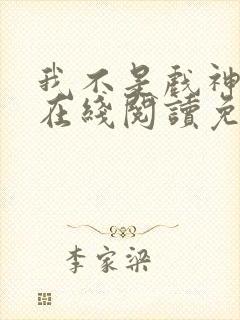 我不是戲神
在綫閱讀免
李家梁